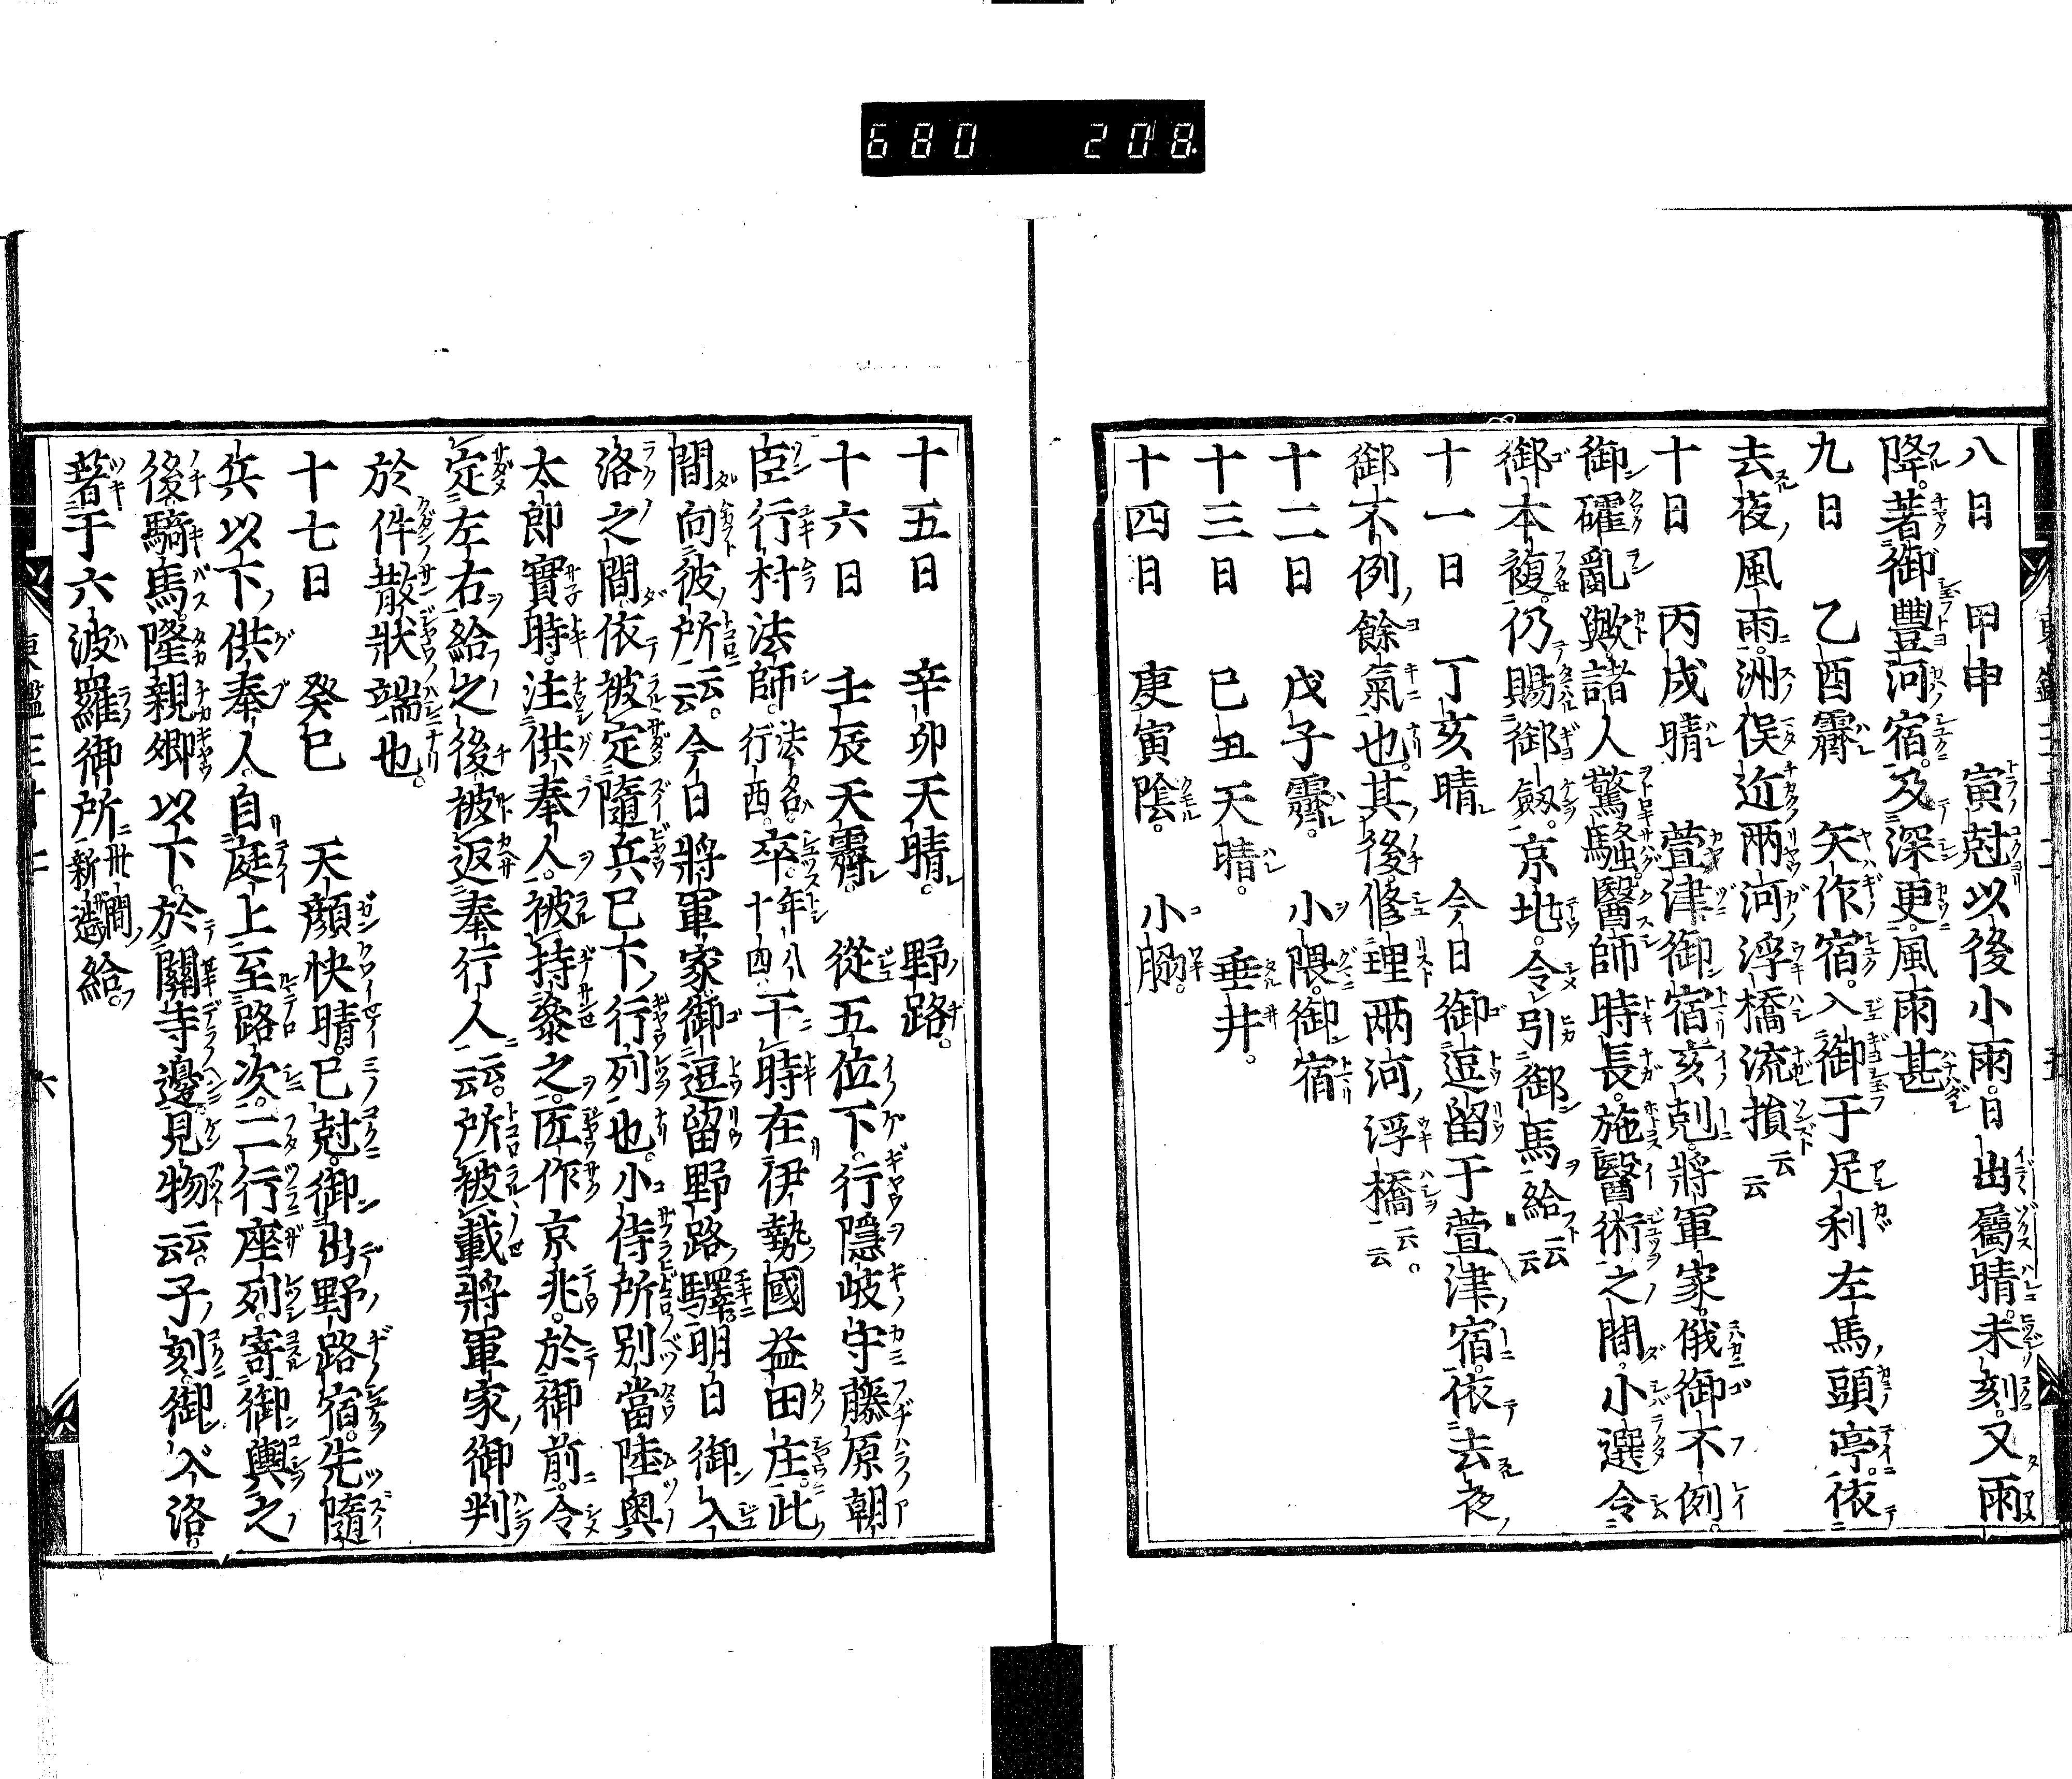 680 208
八日 甲申 寅尅以後小雨。日出屬晴。未刻。又雨
降。著御豐河宿。及深更。風雨甚
九日 乙酉霽 矢作宿。入御于足利左馬頭亭。依
去夜風雨。洲俣近兩河浮橋流損云云
十日 丙戌晴 萱津御宿亥剋。將軍家。俄御不例。
御礭亂歟。諸人驚騷。醫師時長。施醫術之間。小選令
御本複。仍賜御劔。京兆。令引御馬給云云
十一日 丁亥晴 今日御逗留于萱津宿。依去夜
御不例餘氣也。其後。修理兩河浮橋云云。
十二日 戊子霽。 小隈。御宿
十三日 巳丑天晴。 垂井。
十四日 庚寅陰。 小脇。
十五日 辛卯天晴。 野路。
十六日 壬辰天霽。 從五位下。行隱岐守藤原朝
臣行村法師。法名。行西。卒。年八十四 干時在伊勢國益田庄。此
間向彼所云云。今日將軍家御逗留野路驛。明日御入
洛之間。依被定隨兵巳下行列也。小侍所別當陸奧
太郎實時。注供奉人。被持叅之。匠作京兆。於御前。令
定左右給之後。被返奉行人云云。所被載將軍家御判
於件散狀端也。
十七日 癸巳 天顏快晴。巳尅。御出野路宿。先隨
兵以下供奉人。自庭上至路次。二行座列。寄御輿之
後騎馬。隆親卿以下。於關寺邊見物云云。子刻。御入洛。
著于六波羅御所卅間新造給。
六